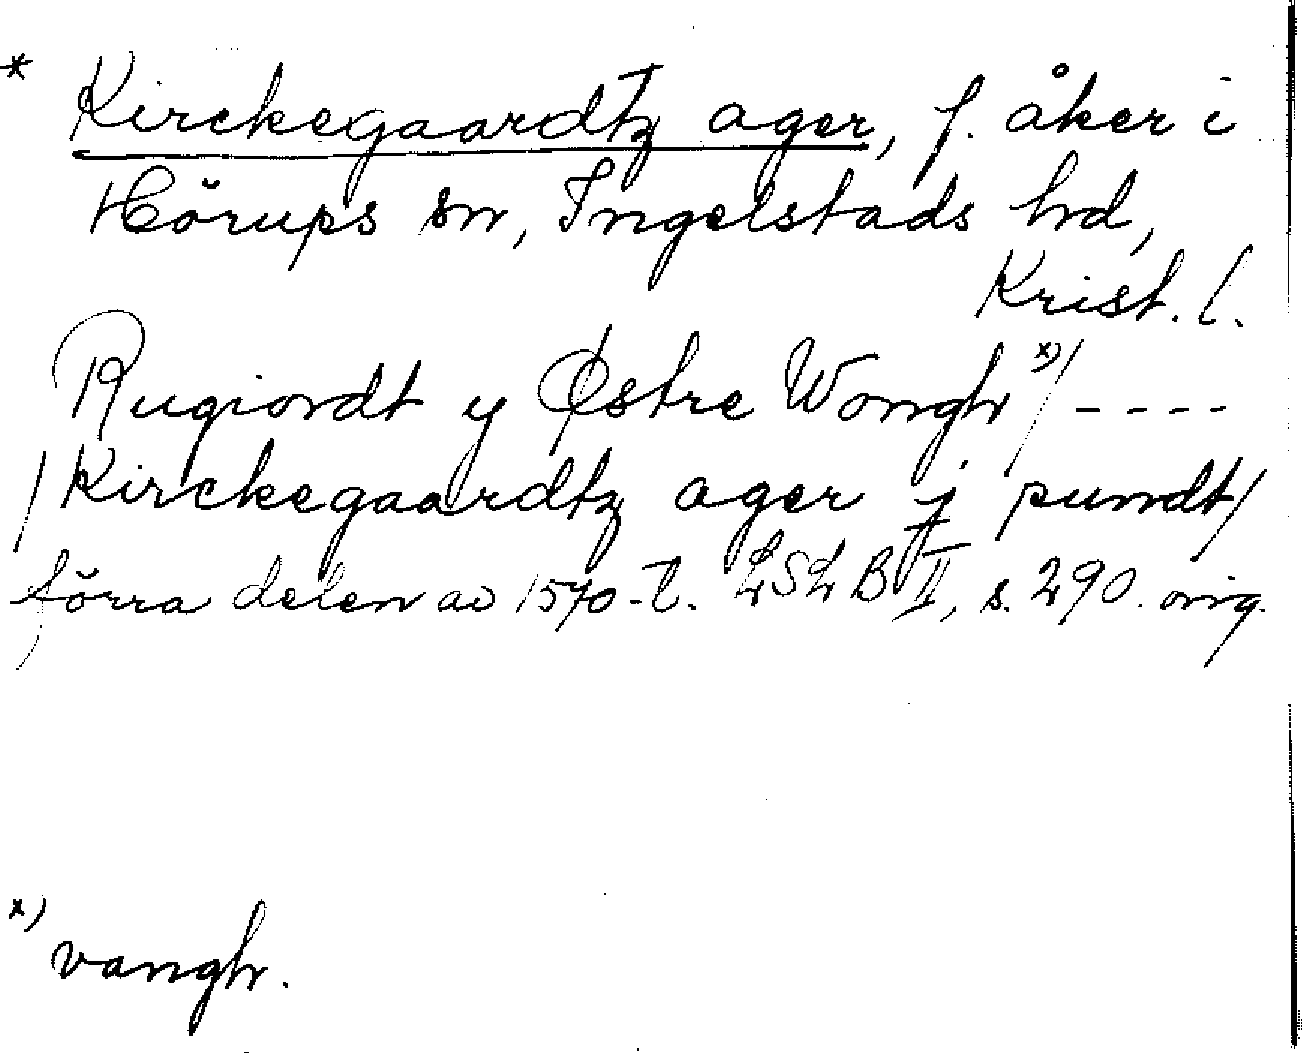 * Kirckegaardtz ager, f. åker i
Hörups sn, Ingelstads hd,
Krist. l.
Rugiordt y Østre Wongh x)/ ----
/Kirckegaardtz ager j pundt/
förra delen av 1570-t. LSLB II, s. 290. orig.
x) vangh.